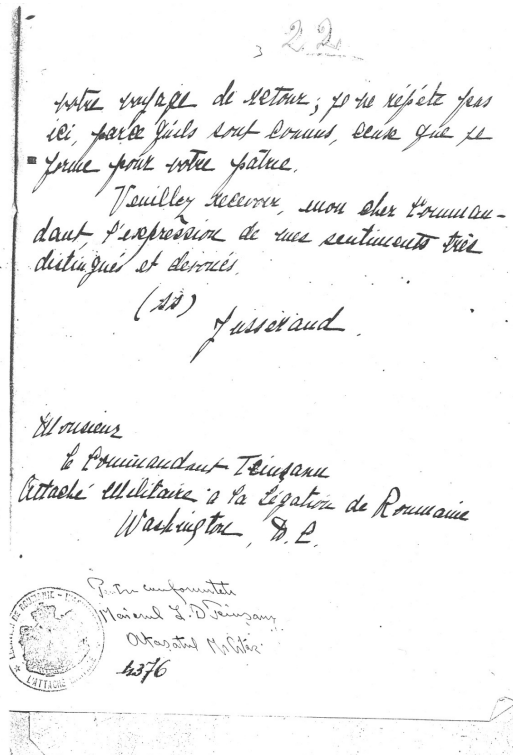 22
votre voyage de retour; je ne répète pas
ici, parce qu'ils sont connus, ceux que je
forme pour votre pâtrie.
Veuillez recevoir, mon cher Comman-
dant, l'expression de mes sentiments très
distingués et dévoués.
(ss)
Jusserand.
Monsieur
le Commandant Teinşanu
Attaché Militaire à la Légation de Roumanie
Washington, D.C.
Pentru conformitate
Maiorul L.D. Teinşanu
Ataşatul Militar
4376
LEGATION DE ROUMANIE
L'ATTACHÉ